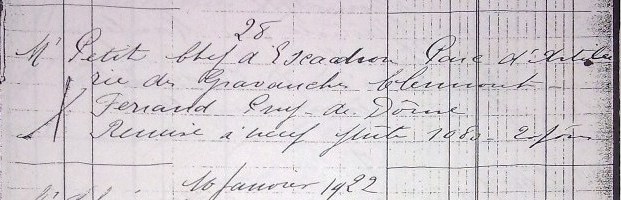 28
Mr Petit Chef d'Escadron Parc d'Artille
rie des Gravanches Clermont
Ferrand Puy-de-Dôme
Remise à neuf flute 1080 -
16 Janvier 1922